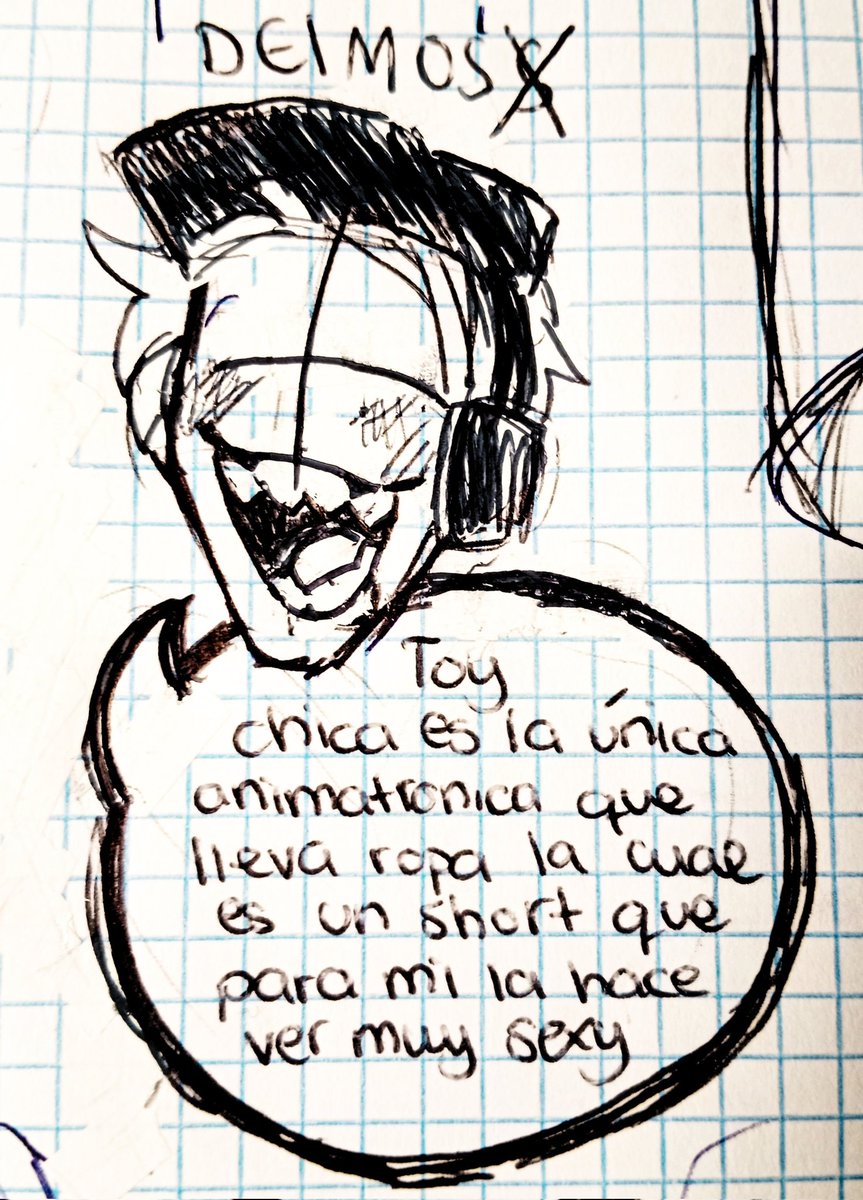 DEIMOS
Toy
chica es la única
animatronica que
lleva ropa la cual
es un short que
para mi la hace
ver muy sexy